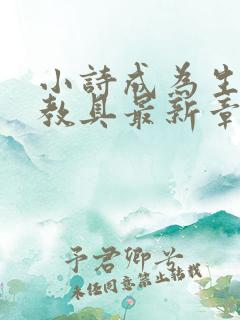 小詩成為生
教具最新章
予君卿兮
未经同意禁止转载